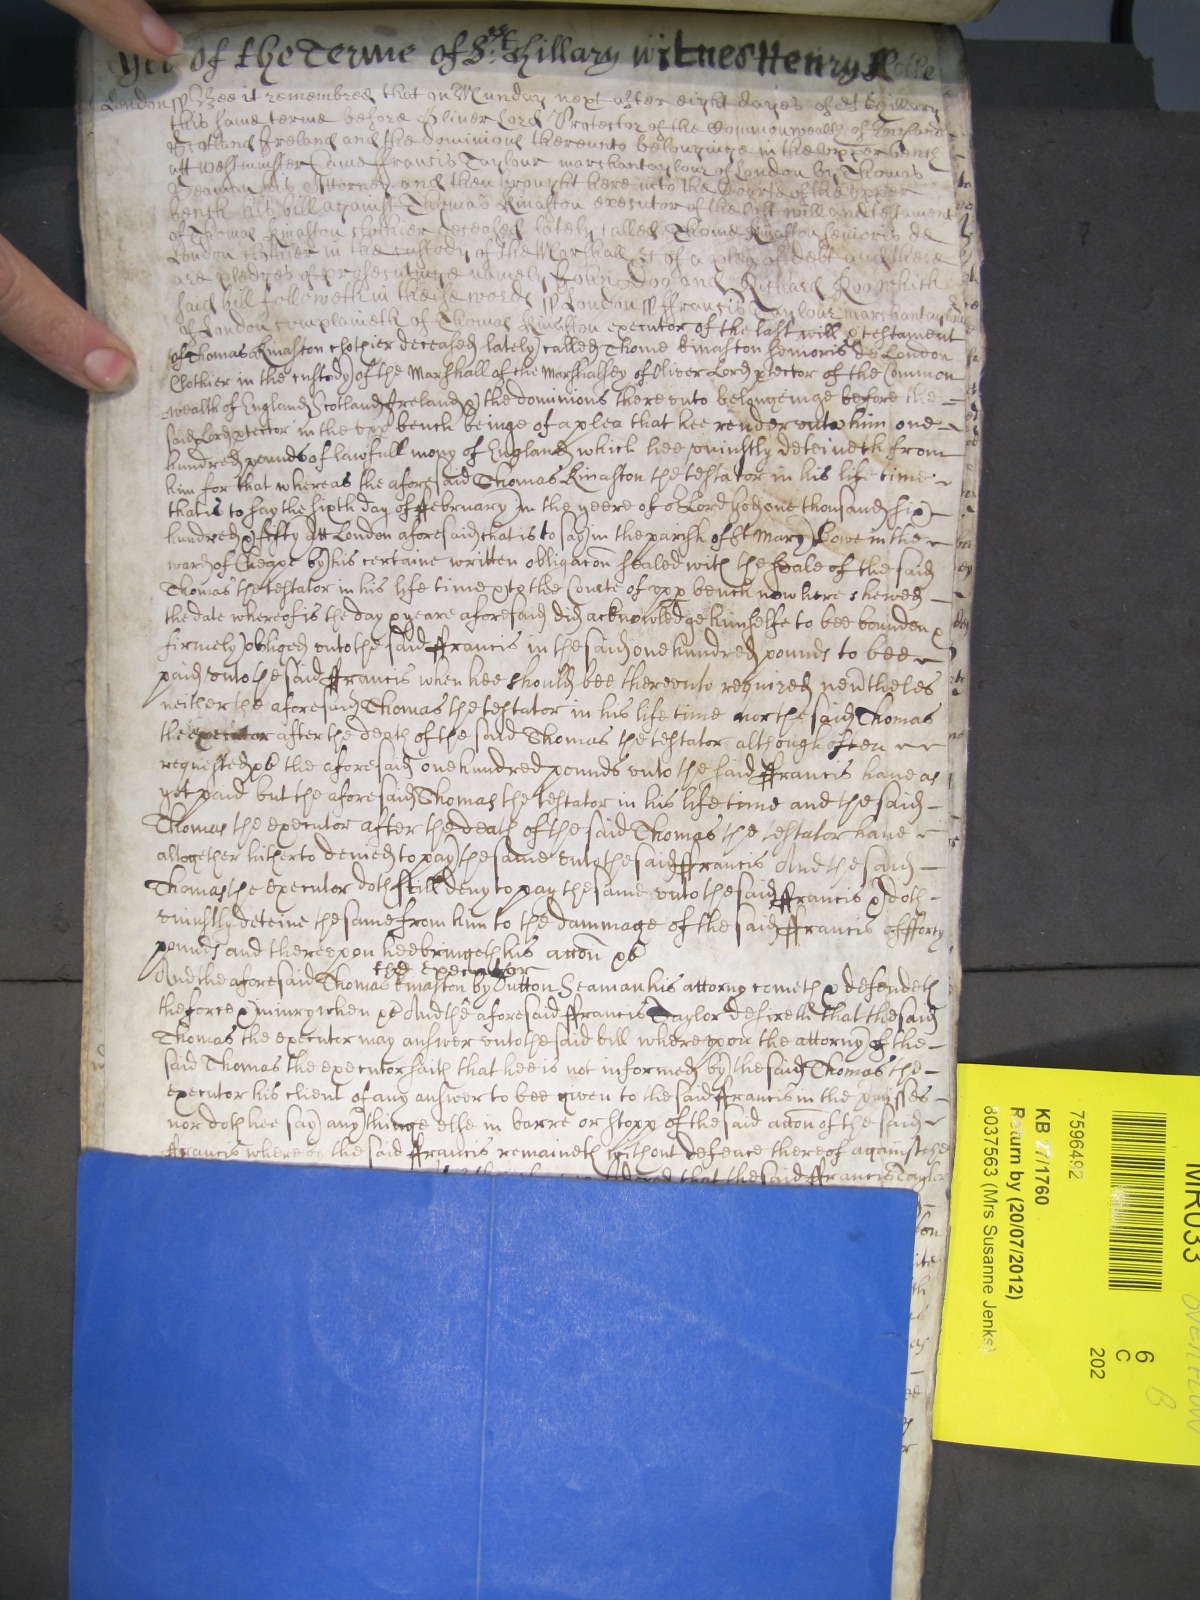 Yet of the Terme of St. Hillary witnes Henry Rolle
London ss Bee it remembred that on Munday next after eight dayes of St Hillary
this same terme before Oliver Lord Protector of the Commonwealth of England
Scotland Ireland and the dominions thereunto belonginge in the upper bench
att Westminster Came ffrancis Taylour marchantaylour of London by Thomas
his Attorney and then brought here into the Courte of the upper
bench his bill against Thomas Kinaston executor of the last will and testament
of Thomas Kinaston clothier deceased lately called Thome Kinaston senioris de
London clothier in the custody of the Marshall &c of a plea of debt and there
are pledges of prosecutinge namely John Doo and Richard Roo which
said bill followeth in theise words ss London ss ffrancis Taylour marchantaylour
of London complaineth of Thomas Kinaston executor of the last will & testament
of Thomas Kinaston clothier deceased lately called Thome Kinaston senioris de London
Clothier in the custody of the Marshall of the Marshallsey of Oliver Lord ptector of the Common
wealth of England Scotland Ireland & the dominions there unto belongeinge before the
said Lord ptector in the upp bench beinge of a plea that hee render unto him one
hundred pounds of lawfull mony of England which hee uniustly deteineth from
him for that whereas the aforesaid Thomas Kinaston the testator in his life time
that is to say the sixth day of ffebruary in the yeere of or Lord God one thousand six
hundred & fifty att London aforesaid that is to say in the parish of St Mary Bowe in the
ward of Cheape by his certaine written obligacon sealed with the seale of the said
Thomas the testator in his life time & to the Courte of upp bench now here shewed
the date whereof is the day & yeare aforesaid did acknowledge himselfe to bee bounden &
firmely obliged unto the said ffrancis in the said one hundred pounds to bee
paid unto the said ffrancis when hee should bee thereunto required nevtheles
neither the aforesaid Thomas the testator in his life time nor the said Thomas
the executor after the death of the said Thomas the testator although often
requested &c the aforesaid one hundred pounds unto the said ffrancis have as
yet paid but the aforesaid Thomas the testator in his life time and the said
Thomas the executor after the death of the said Thomas the testator have
altogether hitherto denied to pay the same unto the said ffrancis And the said
Thomas the executor doth still deny to pay the same unto the said ffrancis & doth
uniustly deteine the same from him to the dammage of the said ffrancis of fforty
pounds and thereupon hee bringeth his accon &c
the executor
And the aforesaid Thomas Kinaston by Dutton Seaman his attorny cometh & defendeth
the force & iniury when &c And the aforesaid ffrancis Taylor desireth that the said
Thomas the executor may answer unto the said bill whereupon the attorny of the
said Thomas the executor saith that hee is not informed by the said Thomas the
executor his client of any answer to bee given to the said ffrancis in the pmisses
nor doth hee say any thinge else in barre or stopp of the said accon of the said
ffrancis whereby the said ffrancis remaineth without defence thereof against the
that the said ffrancis Taylor
MR033
6
C
202
7596492
KB 27/1760
Return by (20/07/2012)
8037563 (Mrs Susanne Jenks)
OVERFLOW
B